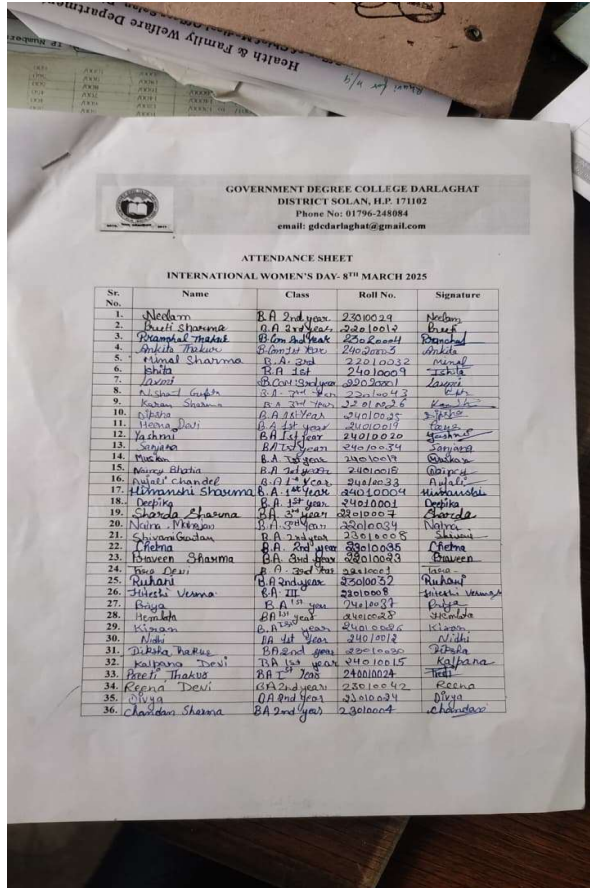 Health & Family Welfare Department
GOVERNMENT DEGREE COLLEGE DARLAGHAT
DISTRICT SOLAN, H.P. 171102
Phone No: 01796-248084
email: gdcdarlaghat@gmail.com
ATTENDANCE SHEET
INTERNATIONAL WOMEN'S DAY- 8TH MARCH 2025
Sr. No. Name Class Roll No. Signature
1. Neelam B.A 2nd year 23010029 Neelam
2. Preeti Sharma B.A 3rd year 22010012 Preeti
3. Pramshal Thakur B.Com 2nd year 23020004 Pramshal
4. Ankita Thakur B.Com 1st Year 24020003 Ankita
5. Minal Sharma B.A. 3rd 22010032 Minal
6. Ishita B.A 1st 24010009 Ishita
7. Laxmi B.Com 3rd year 22020001 Laxmi
8. Nishant Gupta B.A. 3rd Year 22010043
9. Karan Sharma B.A. 3rd Year 22010026
10. Dipsha B.A 1st Year 24010025 Dipsha
11. Heena Devi B.A 1st year 24010019
12. Yashmi BA 1st year 24010020 Yashmi
13. Sanjana BA 1st year 24010034 Sanjana
14. Muskan B.A. 1st year 24010017 Muskan
15. Naincy Bhatia B.A 1st year 24010018 Naincy
16. Anjali Chandel B.A 1st Year 24010033 Anjali
17. Himanshi Sharma B.A. 1st Year 24010004 Himanshi
18. Deepika B.A. 1st year 24010001 Deepika
19. Sharda Sharma BA 3rd year 22010007 Sharda
20. Natna Mahajan B.A. 3rd Year 22010034 Natna
21. Shivani B.A. 2nd year 23010008 Shivani
22. Chetna B.A. 2nd year 23010035 Chetna
23. Praveen Sharma B.A. 3rd year 22010023 Praveen
24. Tara Devi B.A. 3rd Year 22010001 Tara
25. Ruhani B.A 2nd year 23010032 Ruhani
26. Hiteshi Verma B.A. III 22010008 Hiteshi Verma
27. Priya B.A 1st year 24010037 Priya
28. Hemlata BA 1st year 24010028 Hemlata
29. Kiran B.A 1st year 24010026 Kiran
30. Nidhi BA 1st Year 24010012 Nidhi
31. Diksha Thakur BA 2nd year 23010030 Diksha
32. Kalpana Devi BA 1st year 24010015 Kalpana
33. Preeti Thakur BA 1st Year 240010024
34. Reena Devi BA 2nd year 23010042 Reena
35. Divya BA 2nd year 23010024 Divya
36. Chandan Sharma BA 2nd year 23010004 Chandan